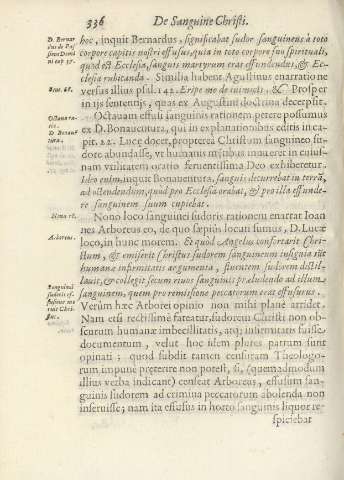 336 De Sanguine Christi.
D. Bernar
dus de Pas
sione Domi
ni cap 37.
hoc, inquit Bernardus, significabat sudor sanguineus à toto
corpore capitis nostri effusus, quia in toto corpore suo spirituali,
quod est Ecclesia, sanguis martyrum erat effundendus, & Ec
clesia rubicanda. Similia habent Agustinus enarratione
versus illius psal. 142. Eripe me de inimicis, & Prosper
in ijs sententijs, quas ex Augustini doctrina decerpsit.
Octaua ra-
tio.
D. Bonauē
tura.
Octauam effusi sanguinis rationem petere possumus
ex D. Bonauentura, qui in explanationibus editis in ca-
pit. 22. Lucæ docet, propterea Christum sanguineo su-
dore abundasse, vt humanis mentibus innueret in eiusf-
nam vtilitatem oratio feruentissima Deo exhiberetur.
Ideo enim, inquit Bonauentura, sanguis decurrebat in terrā,
ad ostendendum, quod pro Ecclesia orabat, & pro illa effunde-
re sanguinem suum cupiebat.
Nona rō.
Arboreus.
Nono loco sanguinei sudoris rationem enarrat Ioan
nes Arboreus eo, de quo sæpius locuti sumus, D. Lucæ
loco, in hunc morem. Et quod Angelus confortarit Chri-
stum, & emiserit Christus sudorem sanguineum insignia sūt
humanæ infirmitatis argumenta, fluentem sudorem distil-
lauit, & collegit secum riuos sanguinis præludendo ad illum
sanguinem, quem pro remissione peccatorum erat effusurus.
Verùm hæc Arborei opinio mihi planè arridet.
Nam etsi rectissimè fateatur, sudorem Christi non ob-
scurum humanæ imbecillitatis, atq; infirmitatis fuisse
documentum, velut hoc idem plures patrum sunt
opinati: quod subdit tamen censuram Theologo-
rum impunè preterire non potest, si, (quemadmodum
illius verba indicant) censeat Arboreus, effusum san-
guinis sudorem ad crimina peccatorum abolenda non
inseruisse; nam ita effusus in horto sanguinis liquor re-
spiciebat